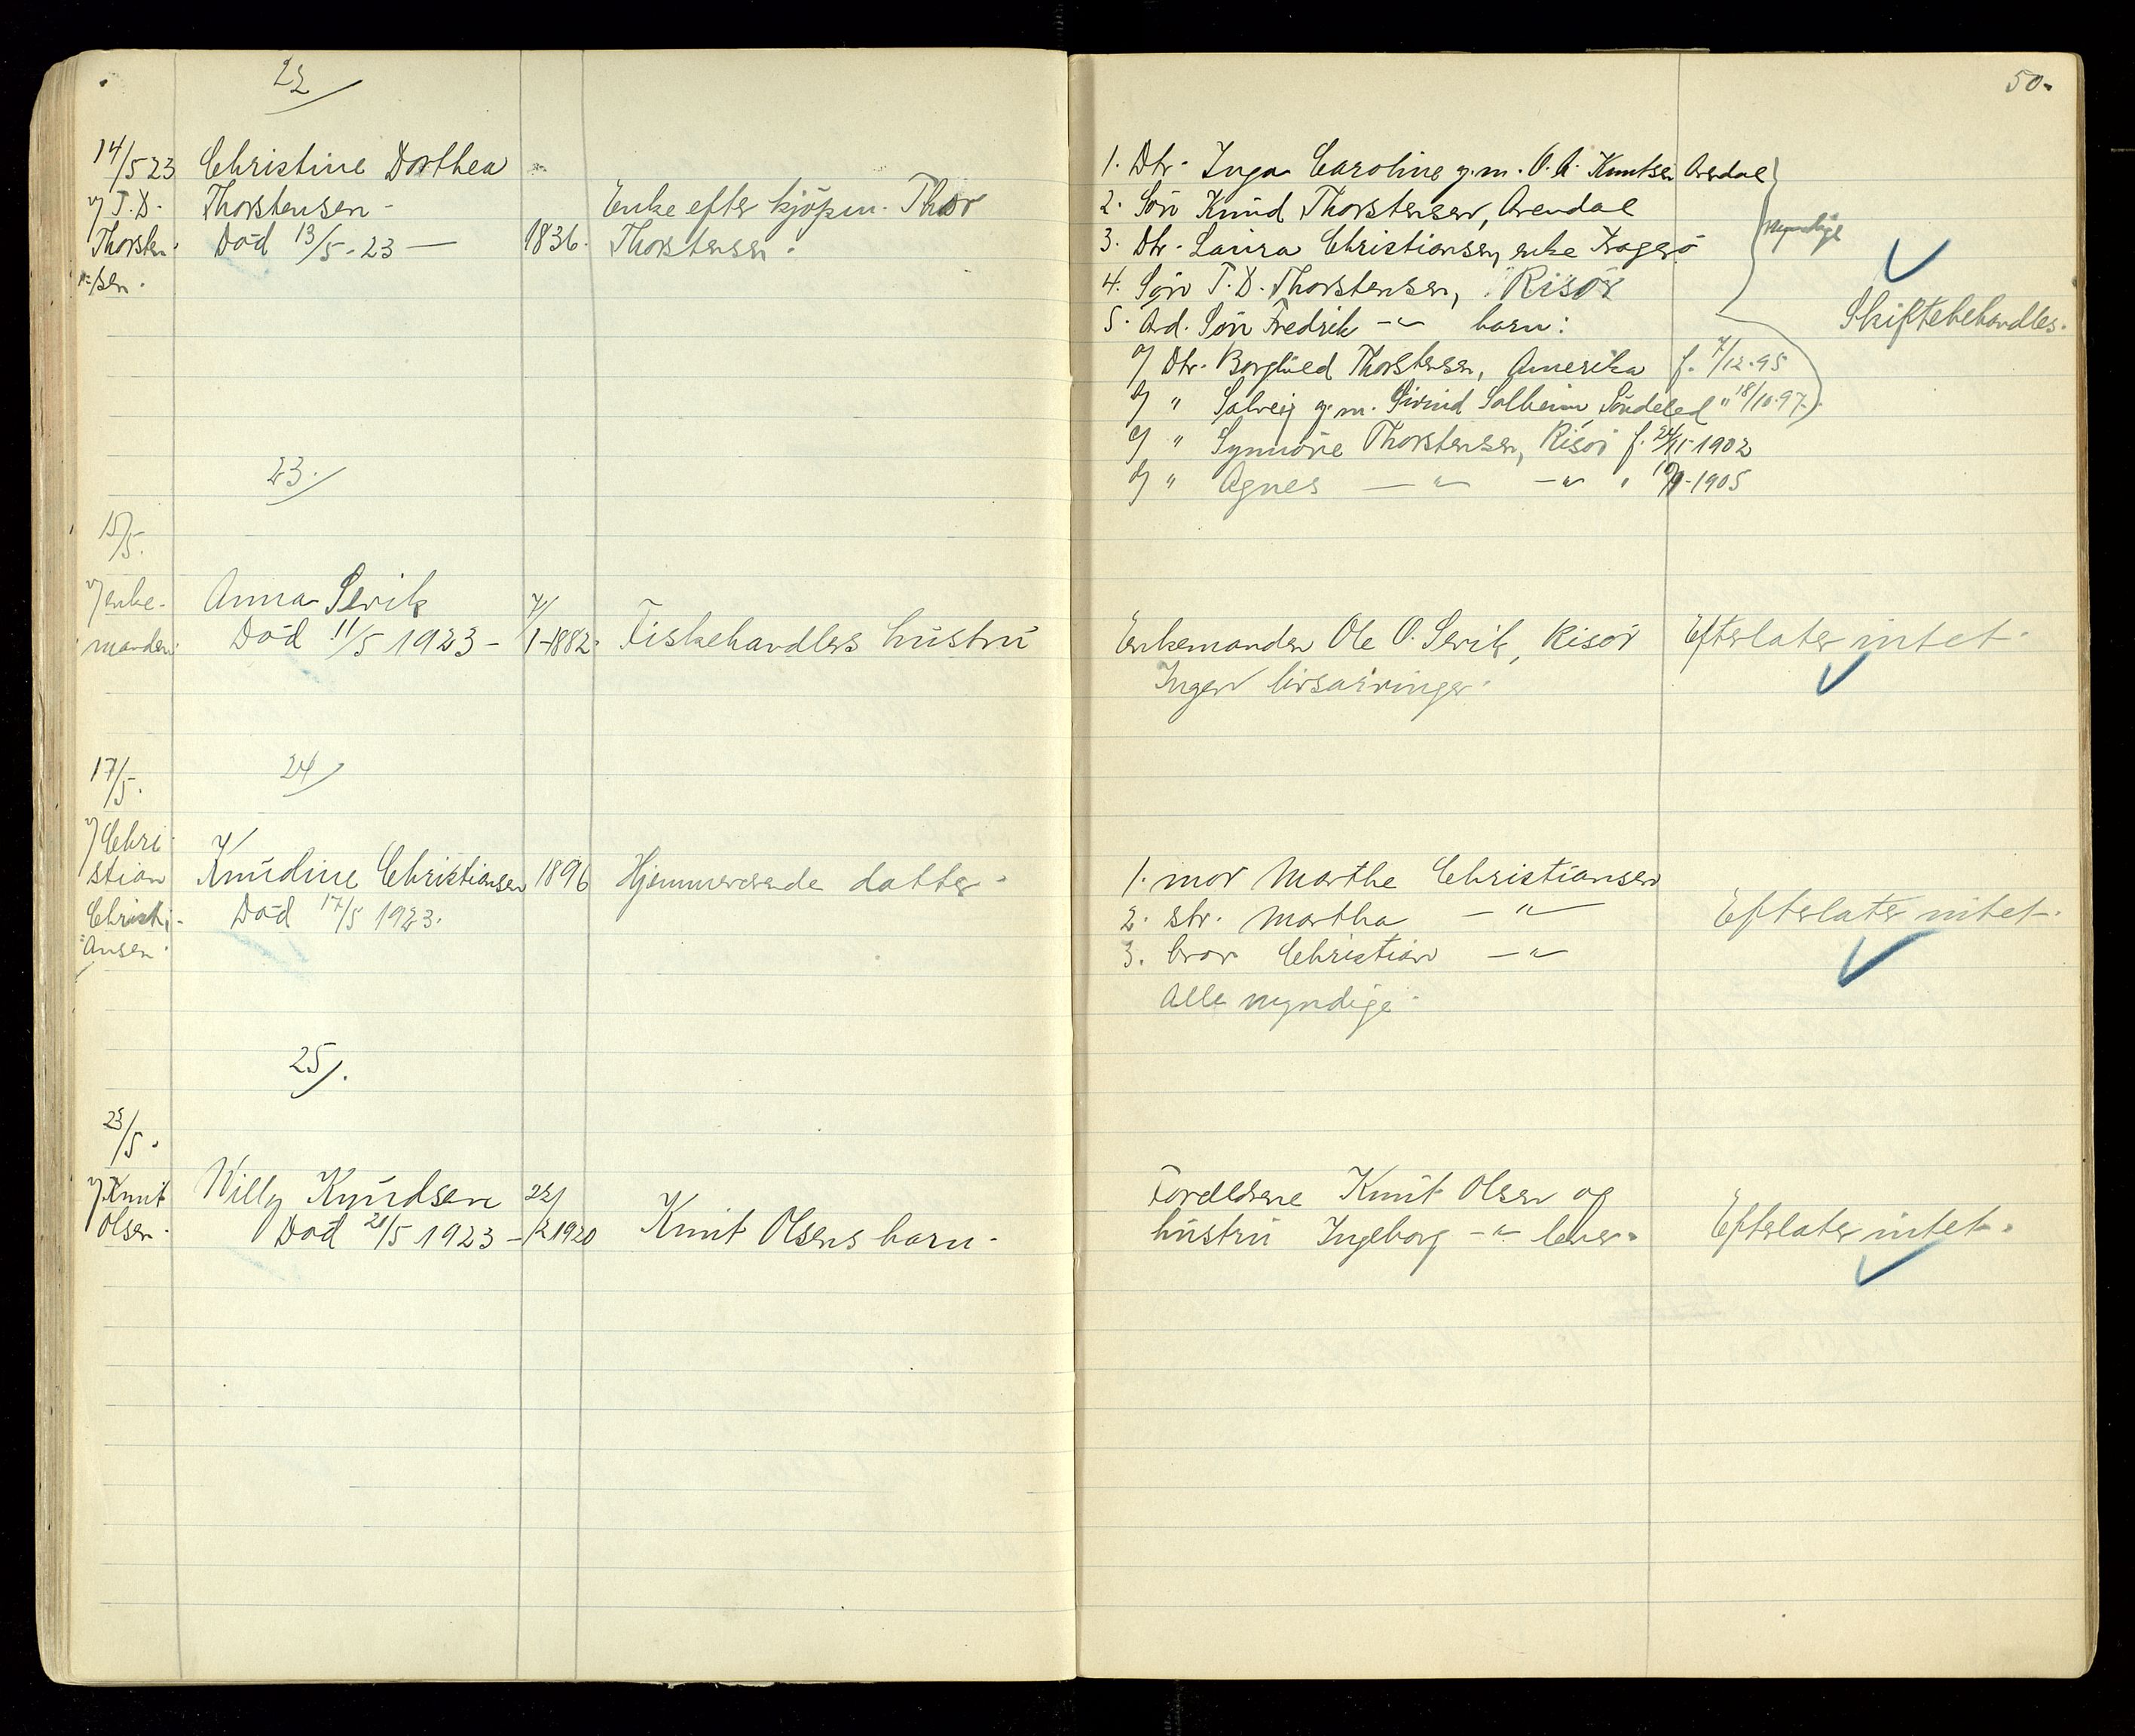 22/
50.
14/5 23
v/ T. D.
Thorsten-
sen.
Christine Dorthea
Thorstensen -
Död 13/5 - 23 —
1836.
Enke efter kjöpm. Thor
Thorstensen.
1. Dtr. Inga Caroline g. m. O. A. Knutsen Arendal
2. Sön Knud Thorstensen, Arendal
3. Dtr. Laura Christiansen, enke Kragerö
4. Sön T. D. Thorstensen, Risör
5. Avd. Sön Fredrik -"- barn:
a/ Dtr. Borghild Thorstensen, Amerika f. 7/12-95
b/ " Solveig g. m. Eivind Solheim, Söndeled " 18/10-97
c/ " Synnöve Thorstensen, Risör f. 24/11-1902
d/ " Agnes -"- -"- " 10/9-1905
myndige
Skiftebehandles.
23./
15/5.
v/ enke-
manden
Anna Sevik
Död 11/5 1923 -
1-1882.
Fiskehandlers hustru
Enkemanden Ole O. Sevik, Risör
Ingen livsarvinger.
Efterlater intet.
24/
17/5.
v/ Chri-
stian
Christi-
ansen.
Knudine Christiansen
Död 17/5 1923.
1896
Hjemmeverende datter.
1. mor Marthe Christiansen
2. str. Martha -"-
3. bror Christian -"-
Alle myndige.
Efterlater intet.
25/.
23/5.
v/ Knut
Olsen.
Willy Knudsen
Död 21/5 1923 -
22/2 1920
Knut Olsens barn.
Foreldrene Knut Olsen og
hustru Ingeborg -"- lever.
Efterlater intet.